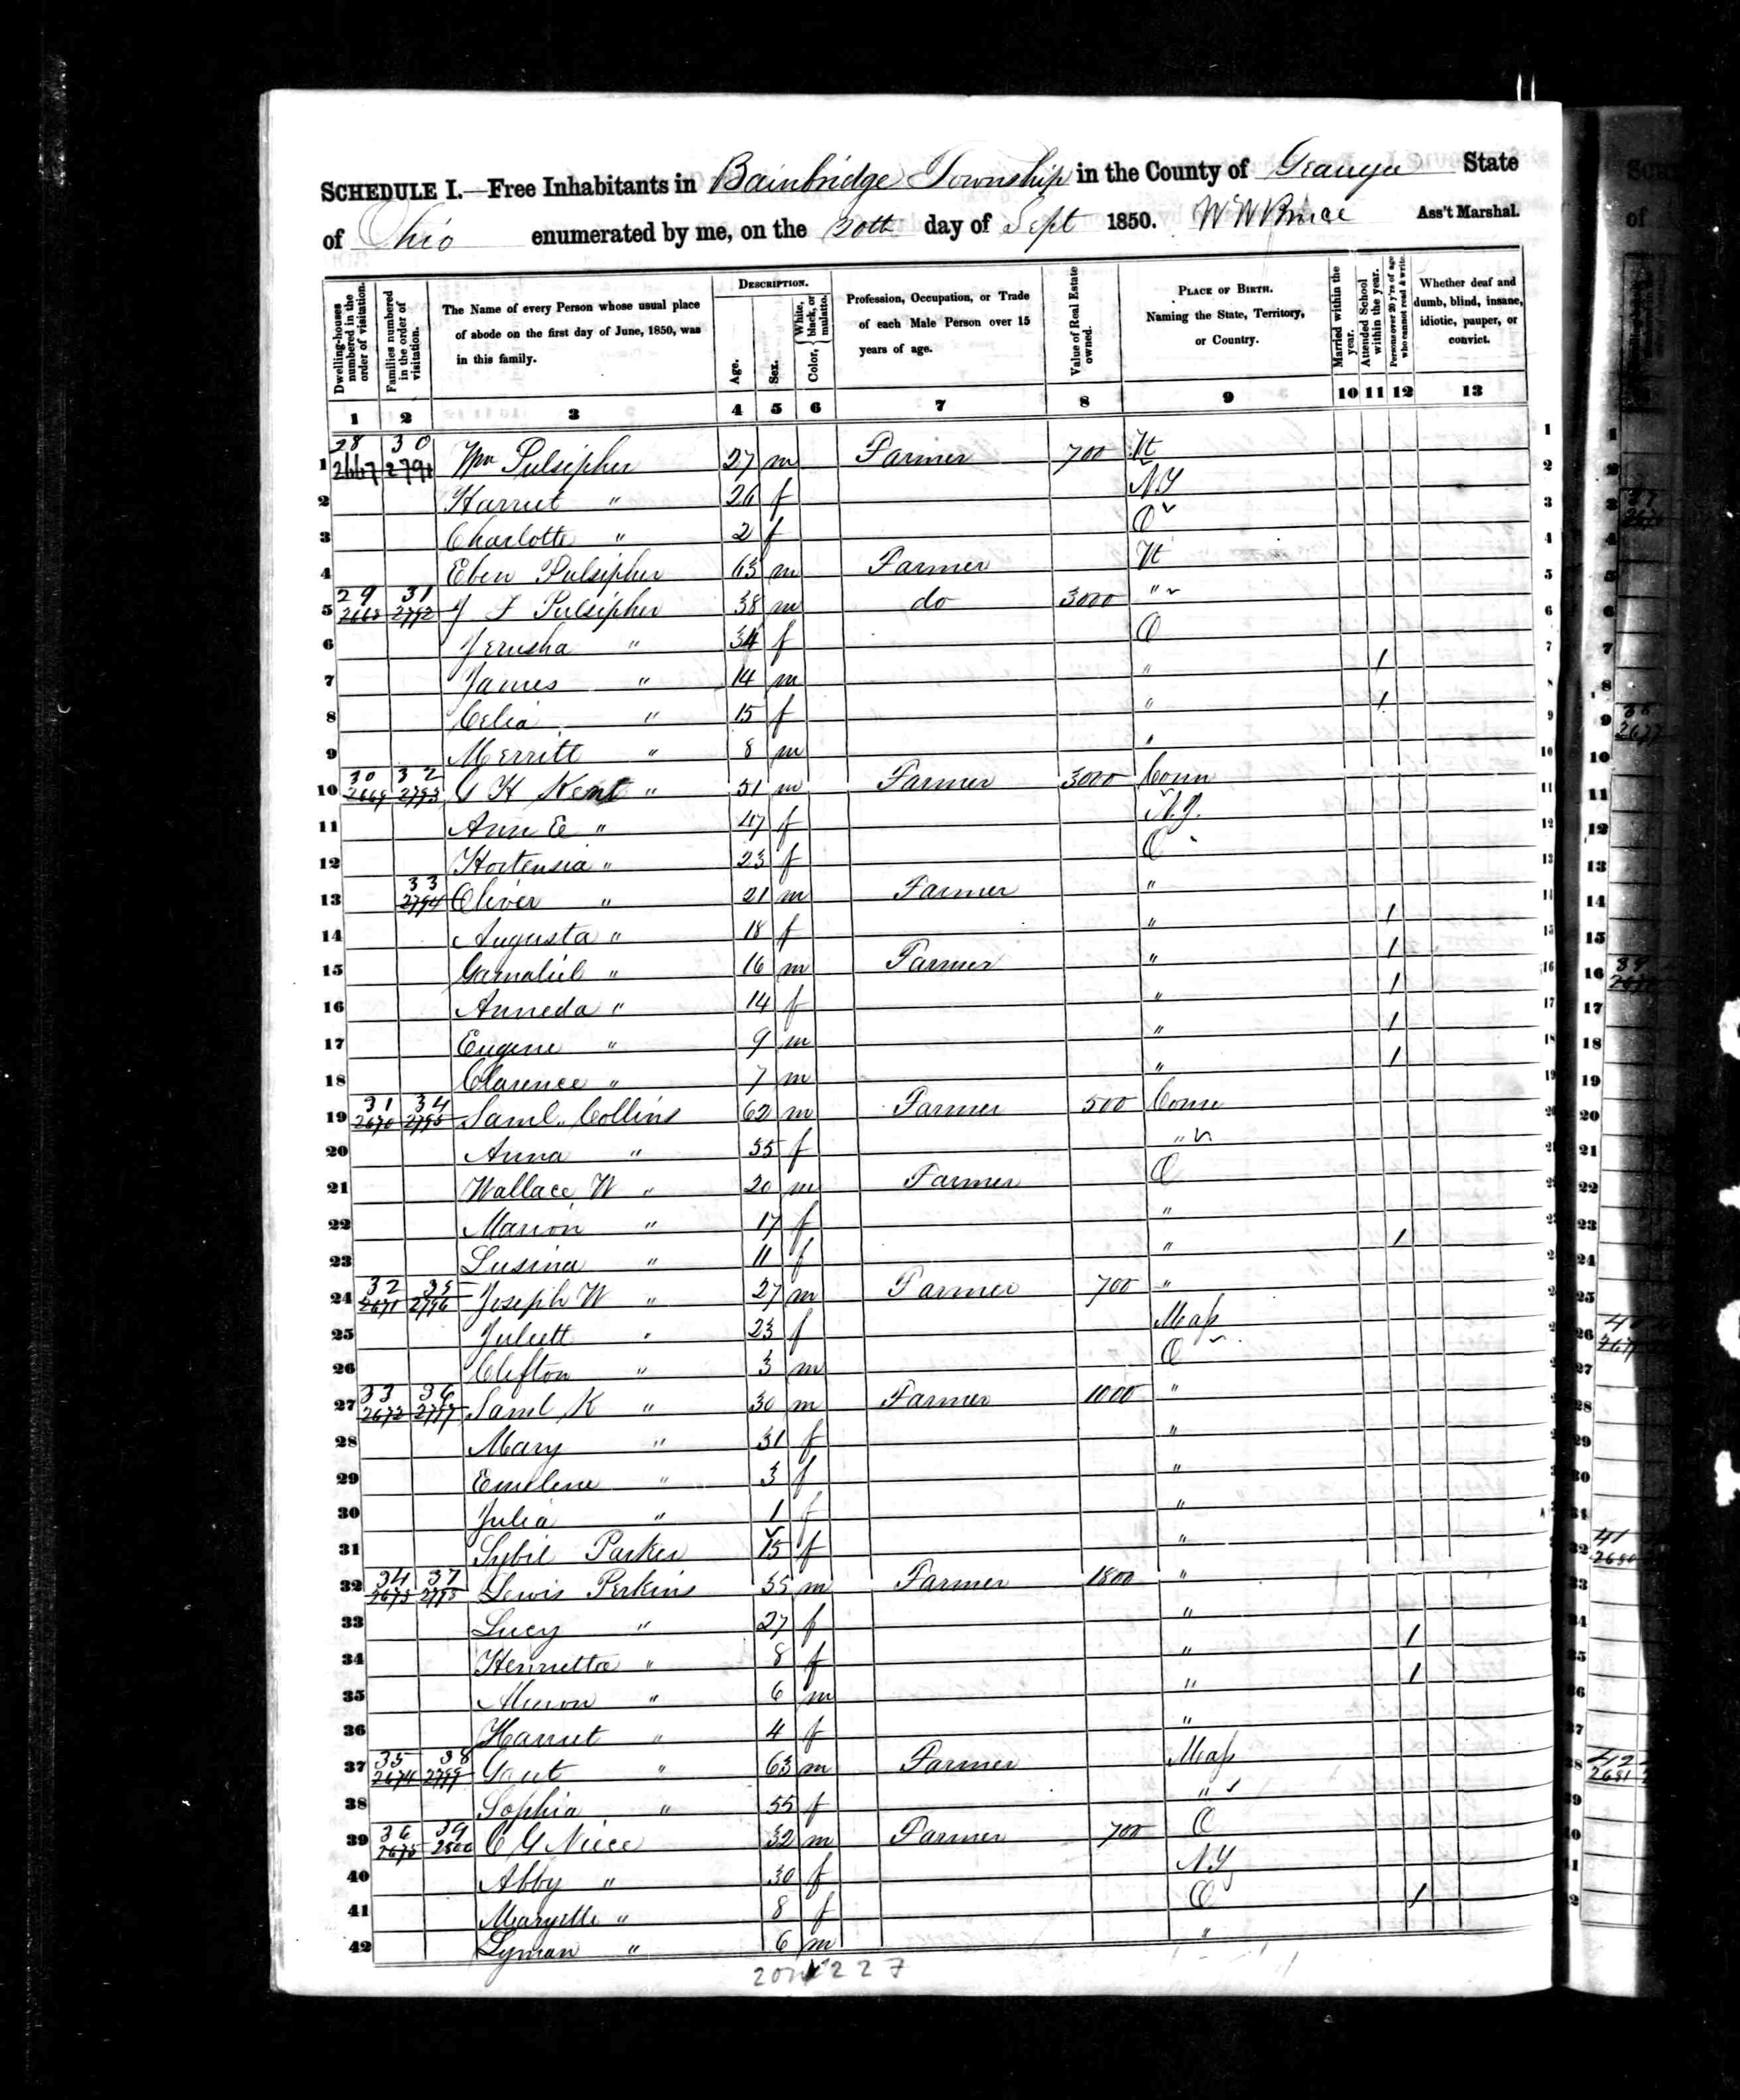 SCHEDULE I.—Free Inhabitants in Bainbridge Township in the County of Geauga State
of Ohio enumerated by me, on the 20th day of Sept 1850. W W Bruce Ass't Marshal.
Dwelling-houses numbered in the order of visitation.
Families numbered in the order of visitation.
The Name of every Person whose usual place of abode on the first day of June, 1850, was in this family.
DESCRIPTION.
Age.
Sex.
Color, { White, black, or mulatto.
Profession, Occupation, or Trade of each Male Person over 15 years of age.
Value of Real Estate owned.
PLACE OF BIRTH. Naming the State, Territory, or Country.
Married within the year.
Attended School within the year.
Persons over 20 y'rs of age who cannot read & write.
Whether deaf and dumb, blind, insane, idiotic, pauper, or convict.
1 2 3 4 5 6 7 8 9 10 11 12 13
28 30
1 2667 2791 Wm Pulsipher 27 m Farmer 700 Vt
2 Harriet " 26 f NY
3 Charlotte " 2 f O
4 Eben Pulsipher 63 m Farmer Vt
29 31
5 2668 2792 J F Pulsipher 38 m do 3000 "
6 Jerusha " 34 f O
7 James " 14 m " 1
8 Celia " 15 f " 1
9 Merritt " 8 m "
30 32
10 2669 2793 G H Kent " 51 m Farmer 3000 Conn
11 Ann E " 47 f N.J.
12 Hortensia " 23 f O
33
13 2794 Oliver " 21 m Farmer "
14 Augusta " 18 f " 1
15 Gamaliel " 16 m Farmer " 1
16 Anneda " 14 f " 1
17 Eugene " 9 m " 1
18 Clarence " 7 m " 1
31 34
19 2670 2795 Saml. Collins 62 m Farmer 500 Conn
20 Anna " 55 f "
21 Wallace W " 20 m Farmer O
22 Marion " 17 f "
23 Lusina " 11 f " 1
32 35
24 2671 2796 Joseph W " 27 m Farmer 700 "
25 Juliett " 23 f Mass
26 Clifton " 3 m O
33 36
27 2672 2797 Saml K " 30 m Farmer 1000 "
28 Mary " 31 f "
29 Emelene " 3 f "
30 Julia " 1 f "
31 Sybil Parker 75 f "
34 37
32 2673 2798 Lewis Perkins 35 m Farmer 1800 "
33 Lucy " 27 f "
34 Henrietta " 8 f " 1
35 " 6 m " 1
36 Harriet " 4 f "
35 38
37 2674 2799 " 63 m Farmer Mass
38 Sophia " 55 f "
36 39
39 2675 2800 C G Niece 32 m Farmer 700 O
40 Abby " 30 f NY
41 Maryette " 8 f O 1
42 Lyman " 6 m "
227